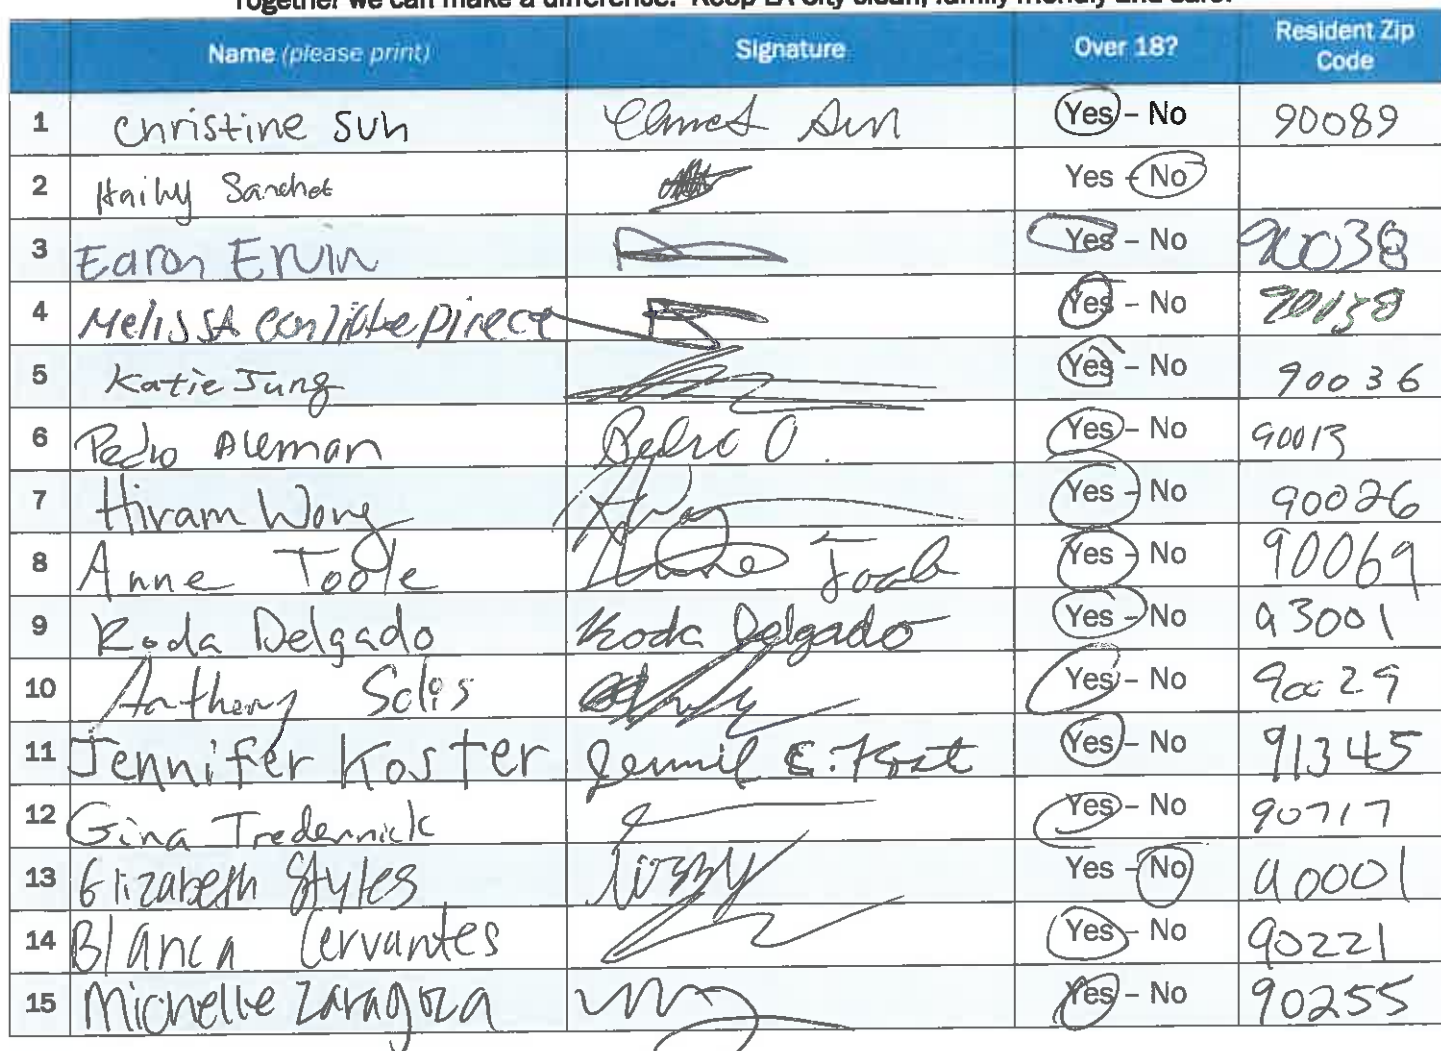 Together we can make a difference. Keep LA City clean, family friendly and safe!
Name (please print) Signature Over 18? Resident Zip Code
1 Christine Suh Yes - No 90089
2 Yes - No
3 Earon Ervin Yes - No 90038
4 Melissa Yes - No
5 Katie Jung Yes - No 90036
6 Pedro Aleman Pedro Yes - No 90013
7 Hiram Wong Yes - No 90026
8 Anne Toole Anne Toole Yes - No 90069
9 Koda Delgado Koda Delgado Yes - No 93001
10 Anthony Solis Yes - No 90029
11 Jennifer Koster Yes - No 91345
12 Gina Tredennick Yes - No 90717
13 Elizabeth Styles Yes - No 90001
14 Blanca Cervantes Yes - No 90221
15 Michelle Zaragoza Yes - No 90255